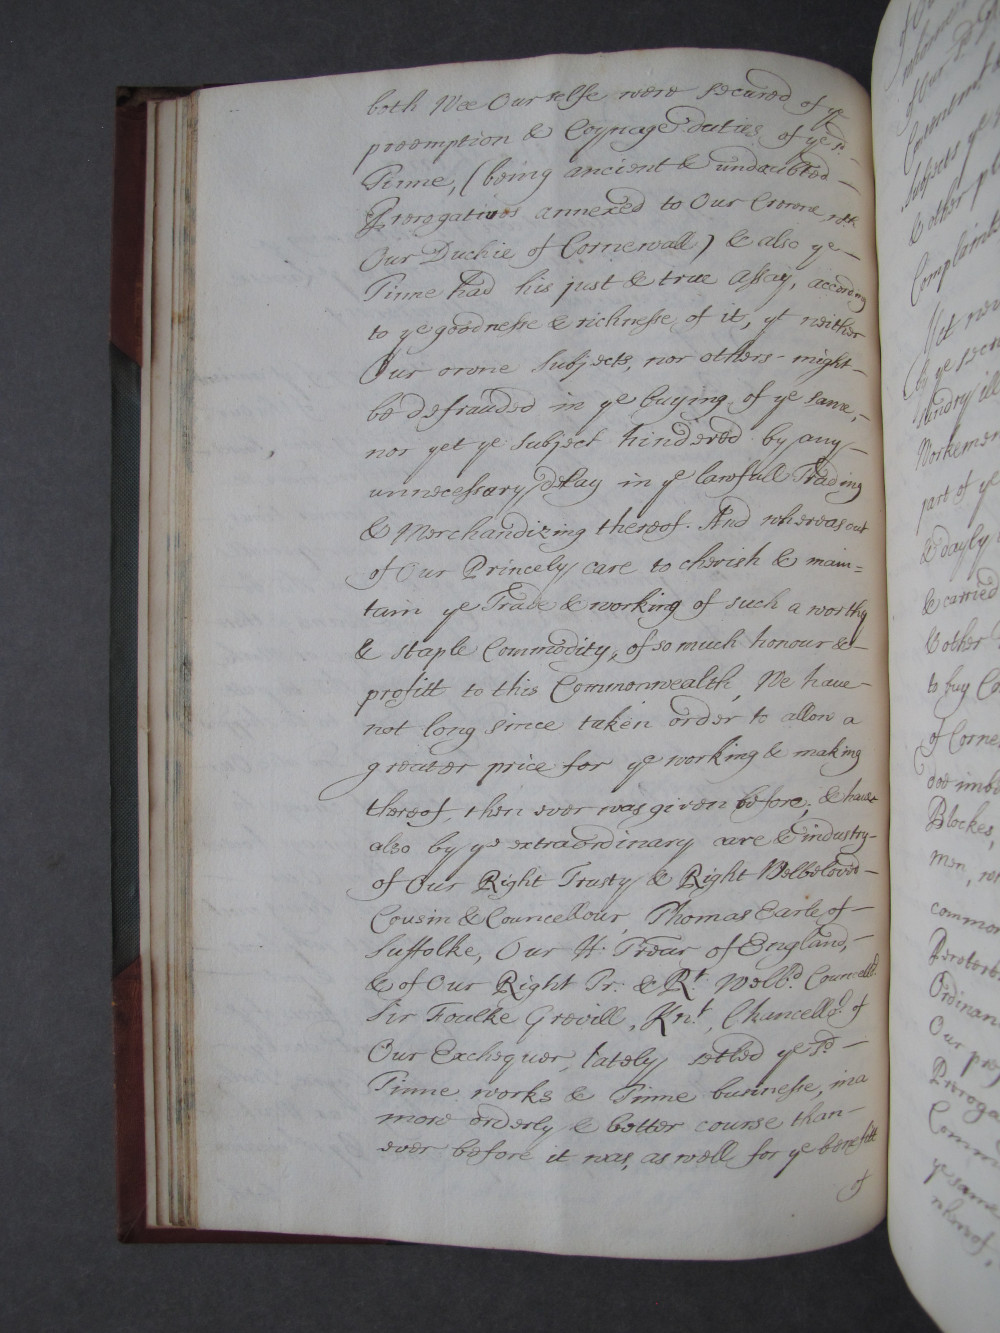 both Wee Our selfe were secured of ye
preemption & Coynage duties of ye sd.
Tinne, (being ancient & undoubted
Prerogatives annexed to Our Crowne, wth
Our Duchie of Cornewall) & also ye
Tinne had his just & true Assay, according
to ye goodnesse & richnesse of it, yt neither
Our owne Subjects, nor others might
be defrauded in ye buying of ye same,
nor yet ye Subject hindered by any
unnecessary delay in ye lawfull Trading
& Merchandizing thereof. And whereas out
of Our Princely care to cherish & main=
tain ye Trade & working of such a worthy
& staple Commodity, of so much honour &
profitt to this Commonwealth, We have
not long since taken order to allow a
greater price for ye working & making
thereof, then ever was given before, & have
also by ye extraordinary care & industry
of Our Right Trusty & Right Welbeloved
Cousin & Councellour, Thomas Earle of
Suffolke, Our H. Trear of England,
& of Our Right Tr: & Rt. Welbd. Councelld.
Sir Foulke Grevill, Knt., Chancellor. of
Our Exchequer, lately setled ye sd.
Tinne works & Tinne businesse, in a
more orderly & better course than
ever before it was, as well for ye benefitt
of
of Our
Subjects ye
& other
Complaints
Yet
by ye
sundry ill
Workemen
part of ye
& dayly
& carried
& other
to buy
of
doe
Blockes,
men,
common
Ordinan
Our
Preroga
Comm
ye same
whereof,